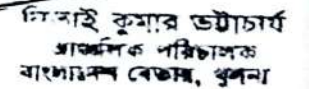 নিতাই কুমার ভট্টাচার্য
আঞ্চলিক পরিচালক
বাংলাদেশ বেতার, খুলনা